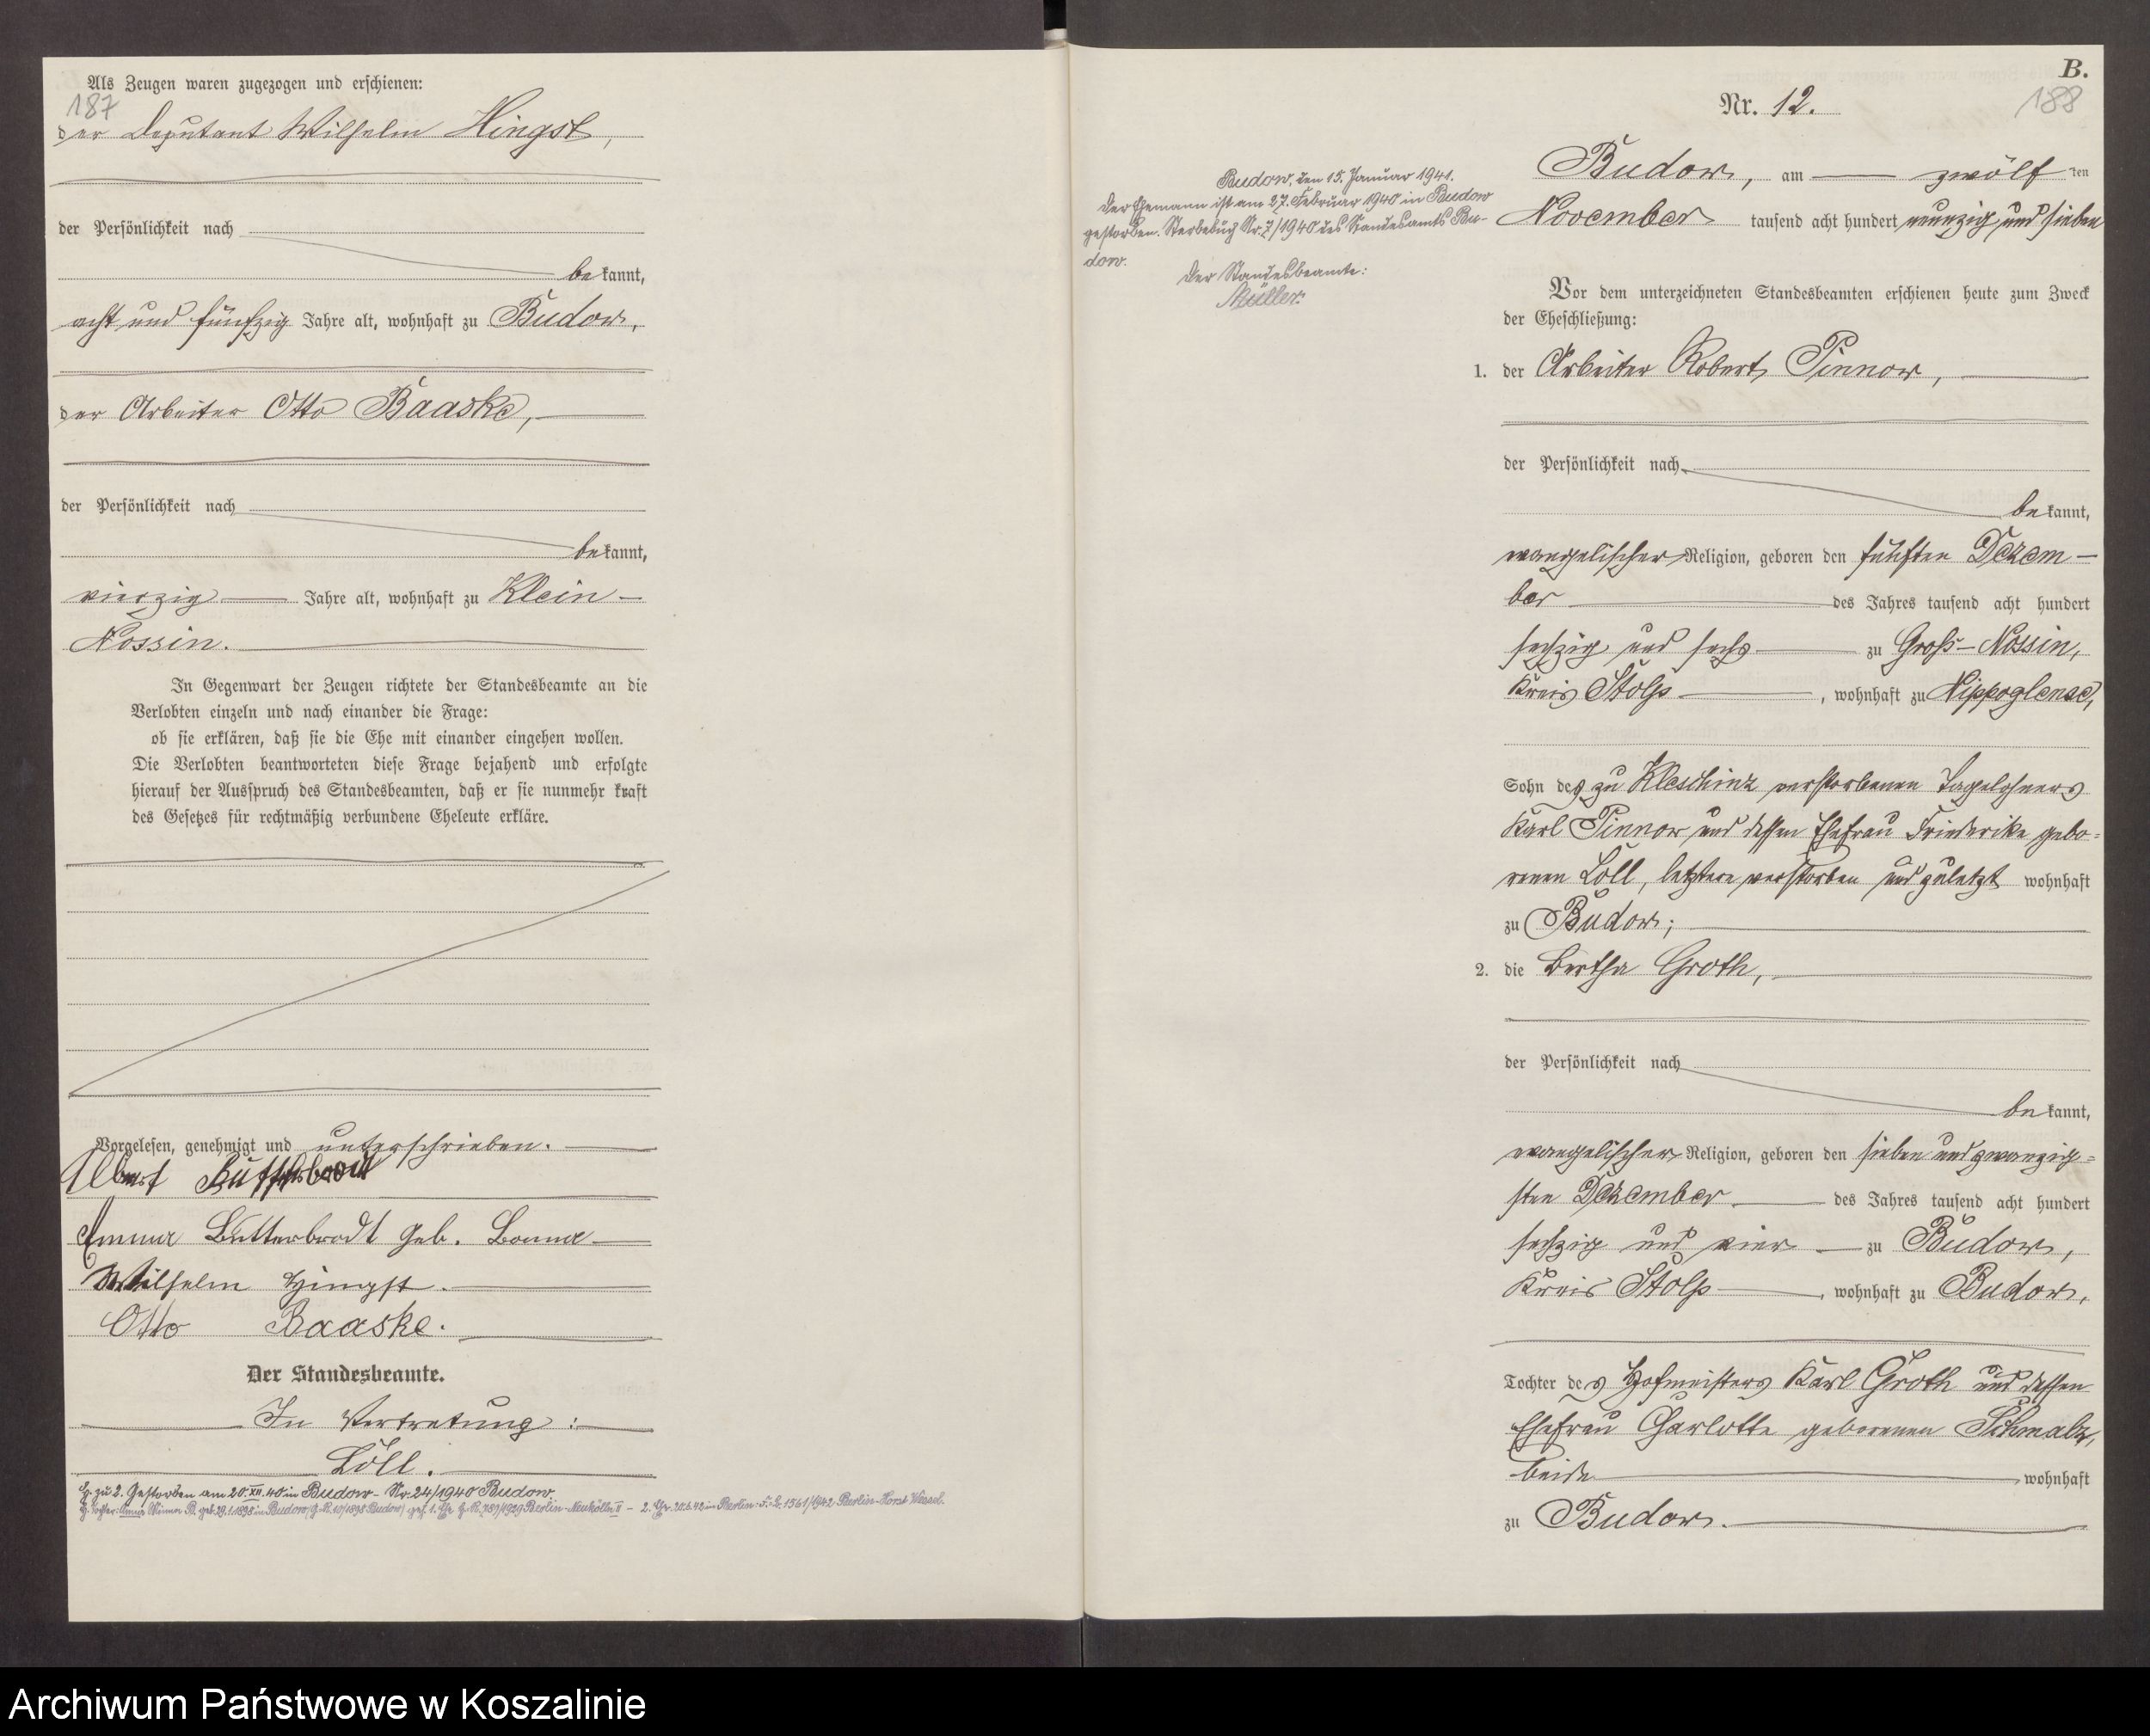 Als Zeugen waren zugezogen und erschienen:
187
der Deputant Wilhelm Hingst,
der Persönlichkeit nach
bekannt,
acht und fünfzig Jahre alt, wohnhaft zu Budow,
der Arbeiter Otto Baaske,
der Persönlichkeit nach
bekannt,
vierzig Jahre alt, wohnhaft zu Klein-
Nossin.
In Gegenwart der Zeugen richtete der Standesbeamte an die
Verlobten einzeln und nach einander die Frage:
ob sie erklären, daß sie die Ehe mit einander eingehen wollen.
Die Verlobten beantworteten diese Frage bejahend und erfolgte
hierauf der Ausspruch des Standesbeamten, daß er sie nunmehr kraft
des Gesetzes für rechtmäßig verbundene Eheleute erkläre.
Vorgelesen, genehmigt und unterschrieben.
Albert Butterbrodt
Emma Butterbrodt geb.
Wilhelm Hingst.
Otto Baaske.
Der Standesbeamte.
In Vertretung:
Löll.
zu 2. Gestorben am 20.XII.40 in Budow - Nr. 24/1940 Budow.
geb. 29.1.1898 in Budow (G.R. 10/1898 Budow) 1. Ehe 789/1929 Berlin-Neukölln II - 2. Ehe 20.6.42 in Berlin 1561/1942 Berlin-Horst Wessel.
B.
188
Nr. 12.
Budow, am zwölften
November tausend acht hundert neunzig und sieben
Budow, den 15. Januar 1941.
Der Ehemann ist am 27. Februar 1940 in Budow
gestorben. Sterbebuch Nr. 7/1940 des Standesamts Bu-
dow.
Der Standesbeamte:
Müller.
Vor dem unterzeichneten Standesbeamten erschienen heute zum Zweck
der Eheschließung:
1. der Arbeiter Robert Pinnow,
der Persönlichkeit nach
bekannt,
evangelischer Religion, geboren den fünften Dezem-
ber des Jahres tausend acht hundert
sechzig und sechs zu Groß-Nossin,
Kreis Stolp, wohnhaft zu Nippoglense,
Sohn des zu Kleschinz verstorbenen Tagelöhners
Karl Pinnow und dessen Ehefrau Friederike gebo-
renen Löll, letztere verstorben und zuletzt wohnhaft
zu Budow;
2. die Bertha Groth,
der Persönlichkeit nach
bekannt,
evangelischer Religion, geboren den sieben und zwanzig-
sten Dezember des Jahres tausend acht hundert
sechzig und vier zu Budow,
Kreis Stolp, wohnhaft zu Budow,
Tochter des Hofmeisters Karl Groth und dessen
Ehefrau Charlotte geborenen Schmalz,
beide wohnhaft
zu Budow.
Archiwum Państwowe w Koszalinie